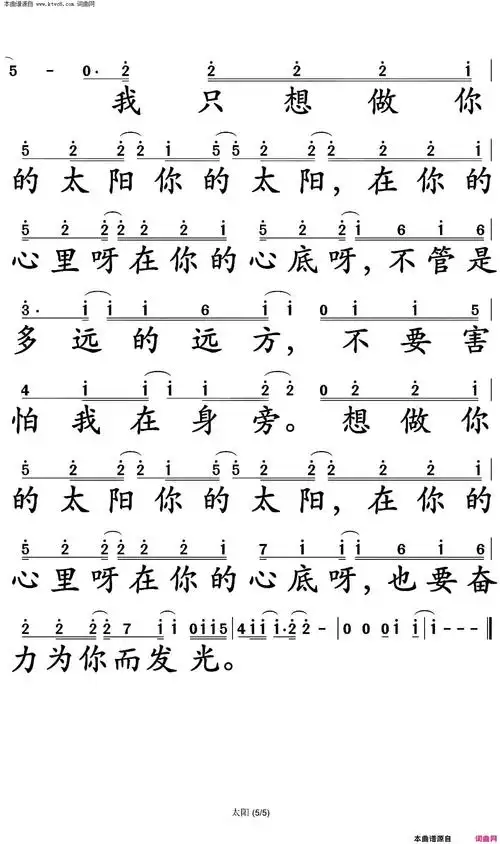 本曲谱源自 www.ktvc8.com 词曲网
5 - 0· 2 2 2 2 i
我只想做你
5 2 2 2 2 i 5 5 2 2 2 2 2 i
的太阳你的太阳，在你的
5 2 2 2 2 2 i 2 5 2 2 i i 6 i 6
心里呀在你的心底呀，不管是
3· i i i 6 i i 0 i i 5
多远的远方，不要害
4 i i i i 2 2 0 2 2 i
怕我在身旁。想做你
5 2 2 2 2 i 5 5 2 2 2 2 2 i
的太阳你的太阳，在你的
5 2 2 2 2 2 2 i 7 i i i i 6 i 6
心里呀在你的心底呀，也要奋
2 2 2 2 7 i i 0 i i 5 | 4 i i i i·2 | 2 - | 0 0 0 i i | i - - - ‖
力为你而发光。
太阳 (5/5)
本曲谱源自 词曲网